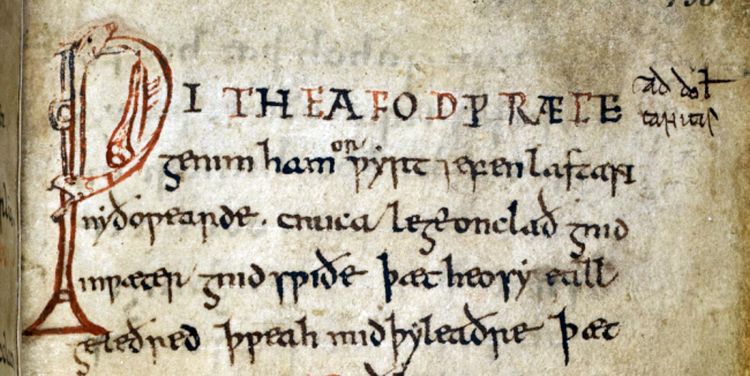 ǷIÐ HEAFODǷRÆCE ad dol
capitis
genim ham on ƿyrt ⁊ efenlastan
nyðoƿearde · cnuca lege on clað gnid
in ƿæter gnid sƿiðe þæt heo sy eall
geleðred þƿeah mid þy leaðre þæt